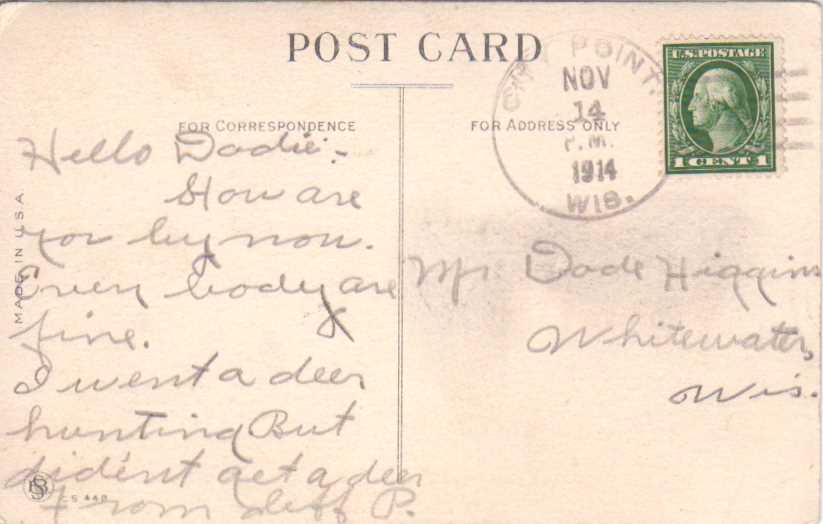 POST CARD
FOR CORRESPONDENCE
FOR ADDRESS ONLY
CITY POINT.
NOV
14
P.M.
1914
WIS.
U.S. POSTAGE
1 CENT 1
MADE IN U.S.A.
Hello Dodie:-
How are
you by now.
Every body are
fine.
I went a deer
hunting But
did'ent get a deer
From P.
Mr Dode Higgins
Whitewater,
Wis.